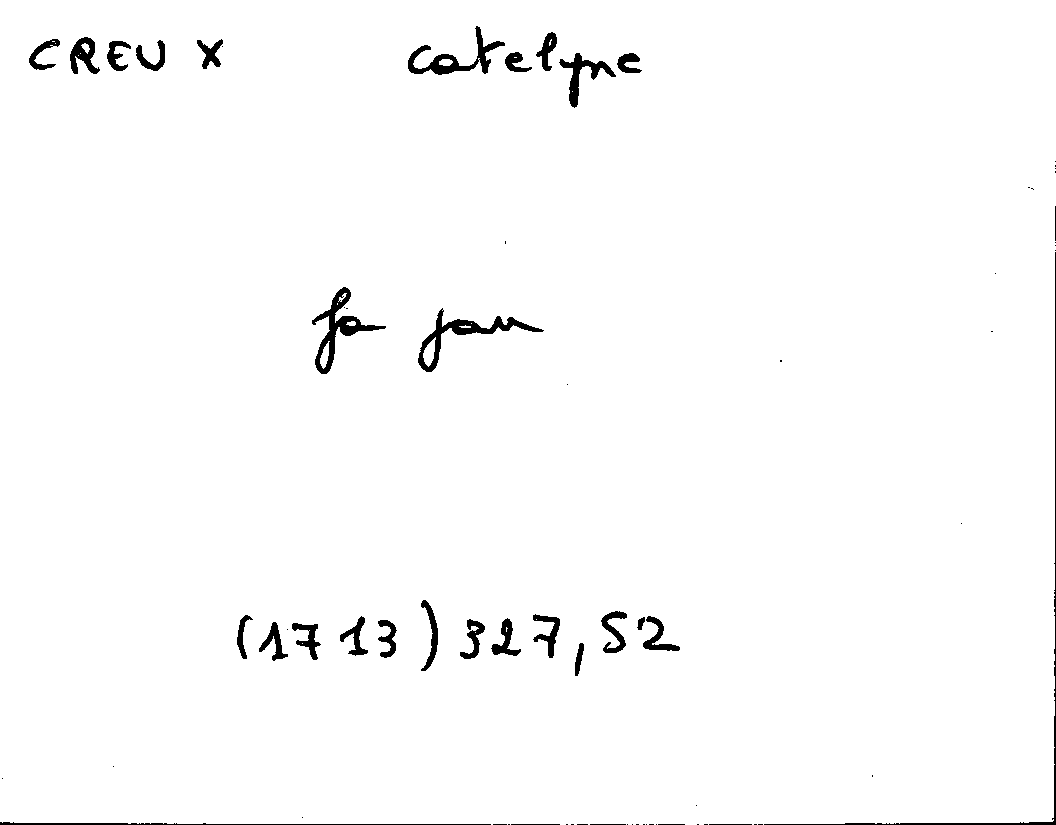 CREUX catelyne
fa jan
(1713) 327, 52